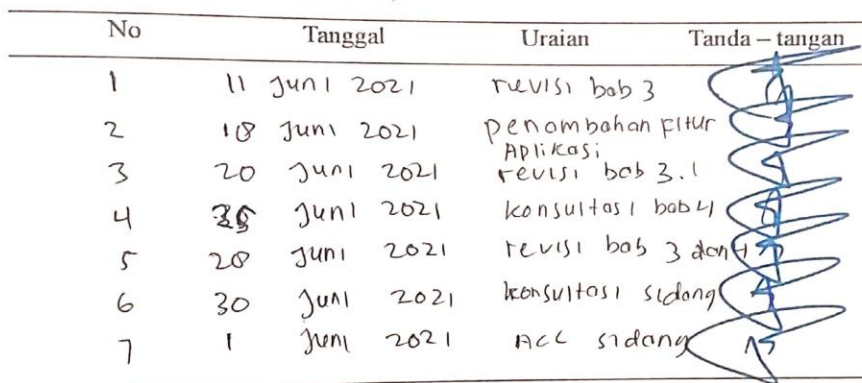 No Tanggal Uraian Tanda – tangan
1 11 Juni 2021 revisi bab 3
2 18 Juni 2021 penambahan fitur
Aplikasi
3 20 Juni 2021 revisi bab 3.1
4 Juni 2021 konsultasi bab 4
5 28 Juni 2021 revisi bab 3 dan 4
6 30 Juni 2021 konsultasi sidang
7 1 Juni 2021 ACC sidang